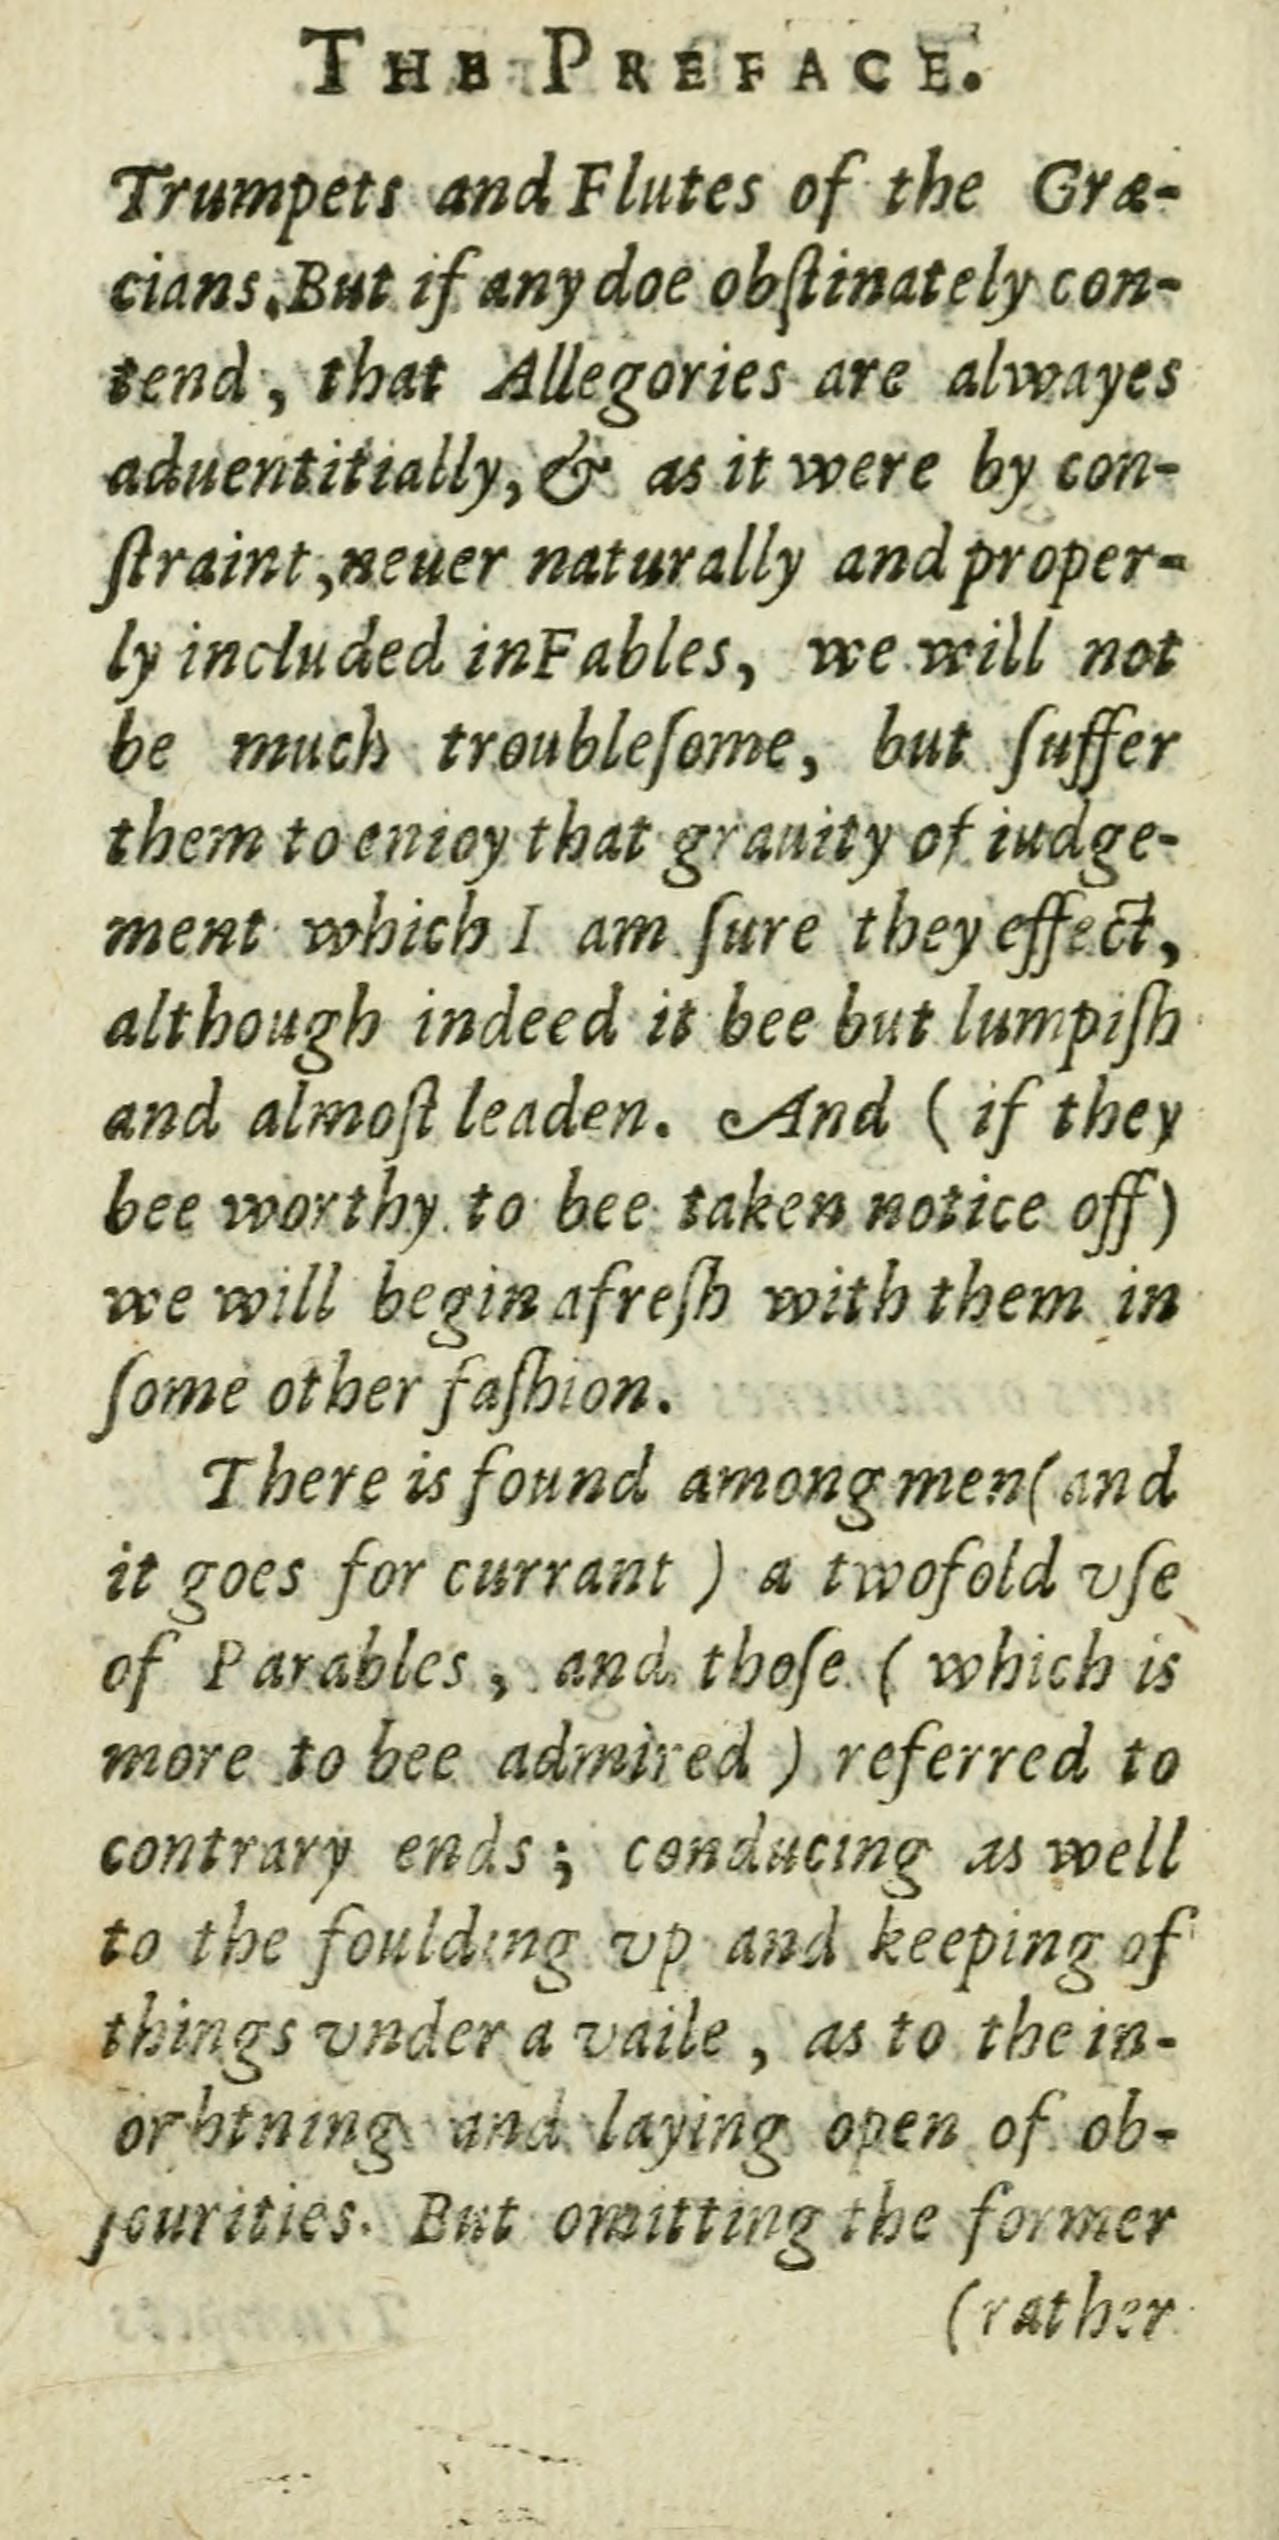 THE PREFACE.
Trumpets and Flutes of the Græ-
cians. But if any doe obſtinately con-
tend, that Allegories are alwayes
aduentitially, & as it were by con-
ſtraint, neuer naturally and proper-
ly included in Fables, we will not
be much troubleſome, but ſuffer
them to enioy that grauity of iudge-
ment which I am ſure they effect,
although indeed it bee but lumpiſh
and almoſt leaden. And (if they
bee worthy to bee taken notice off)
we will begin afreſh with them in
ſome other faſhion.
There is found among men (and
it goes for currant) a twofold vſe
of Parables, and thoſe (which is
more to bee admired) referred to
contrary ends; conducing as well
to the foulding vp and keeping of
things vnder a vaile, as to the in-
and laying open of ob-
ſcurities. But omitting the former
(rather